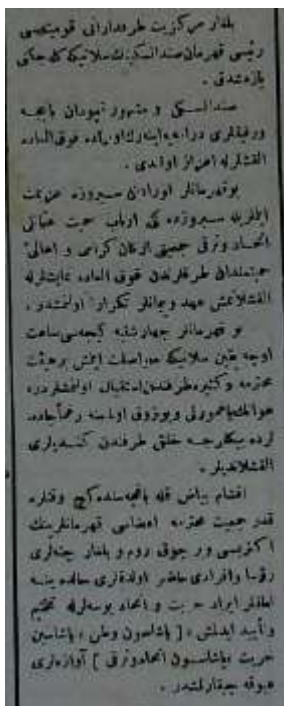 بلغار مركزيت طرفدارانى قوميتهسى
رئيسى قهرمان صندانسكينك سلانيكه كلديكنى
يازمشدق .
صندانسكى و مشهور چهودان پانچه
ورفيقلرى درامه يه اوراده فوق العاده
القشلرله اعزاز اولندى .
بوقهرمانلر اورادن سيروزه عزيمت
ايتملريله سيروزده كى ارباب حميت عثمانى
اتحاد وترقى جمعيتى اركان كرامى و اهالى
حميتمندان طرفلرندن فوق العاده نمايشلرله
القشلانمش عهد و پيمانلر تكرار اولنمشدر .
بو قهرمانلر چهارشنبه كيجه سى ساعت
اوچه يقين سلانيكه مواصلت ايتمش برهيئت
محترمه وكثيره طرفندن استقبال اولنمشلردر
هوانك ياغمورلى و بوزوق اولمسنه رغماً جاده
لرده بيكلرجه خلق طرفندن كنديلرى
القشلانديلر .
اقشام بياض قله باغچه سنده كچ وقتلره
قدر جمعيت محترمه اعضاسى قهرمانلرينك
اكثريسى و بر چوق روم و بلغار چته لرى
رؤسا وافرادى حاضر اولدقلرى حالده ينه
نطقلر ايراد حريت و اتحاد بوسه لرله تختيم
وتأييد ايدلش ، [ ياشاسون وطن ، ياشاسين
حريت ، ياشاسون اتحاد وترقى ] آوازه لرى
عيوقه چيقارلمشدر .